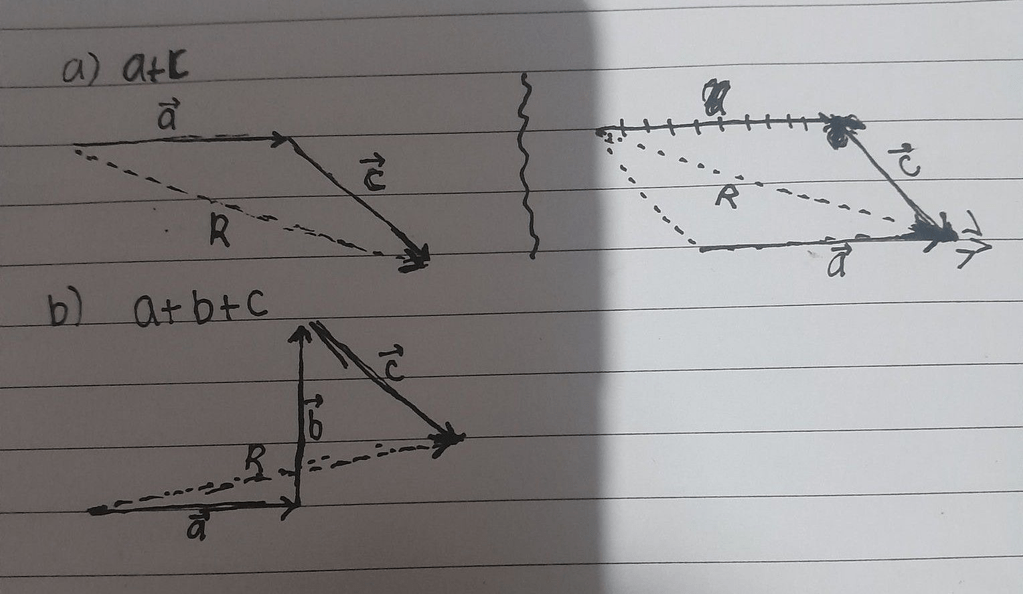 a) a+c
a⃗
c⃗
R
c⃗
R
a⃗
b) a+b+c
c⃗
b⃗
R
a⃗